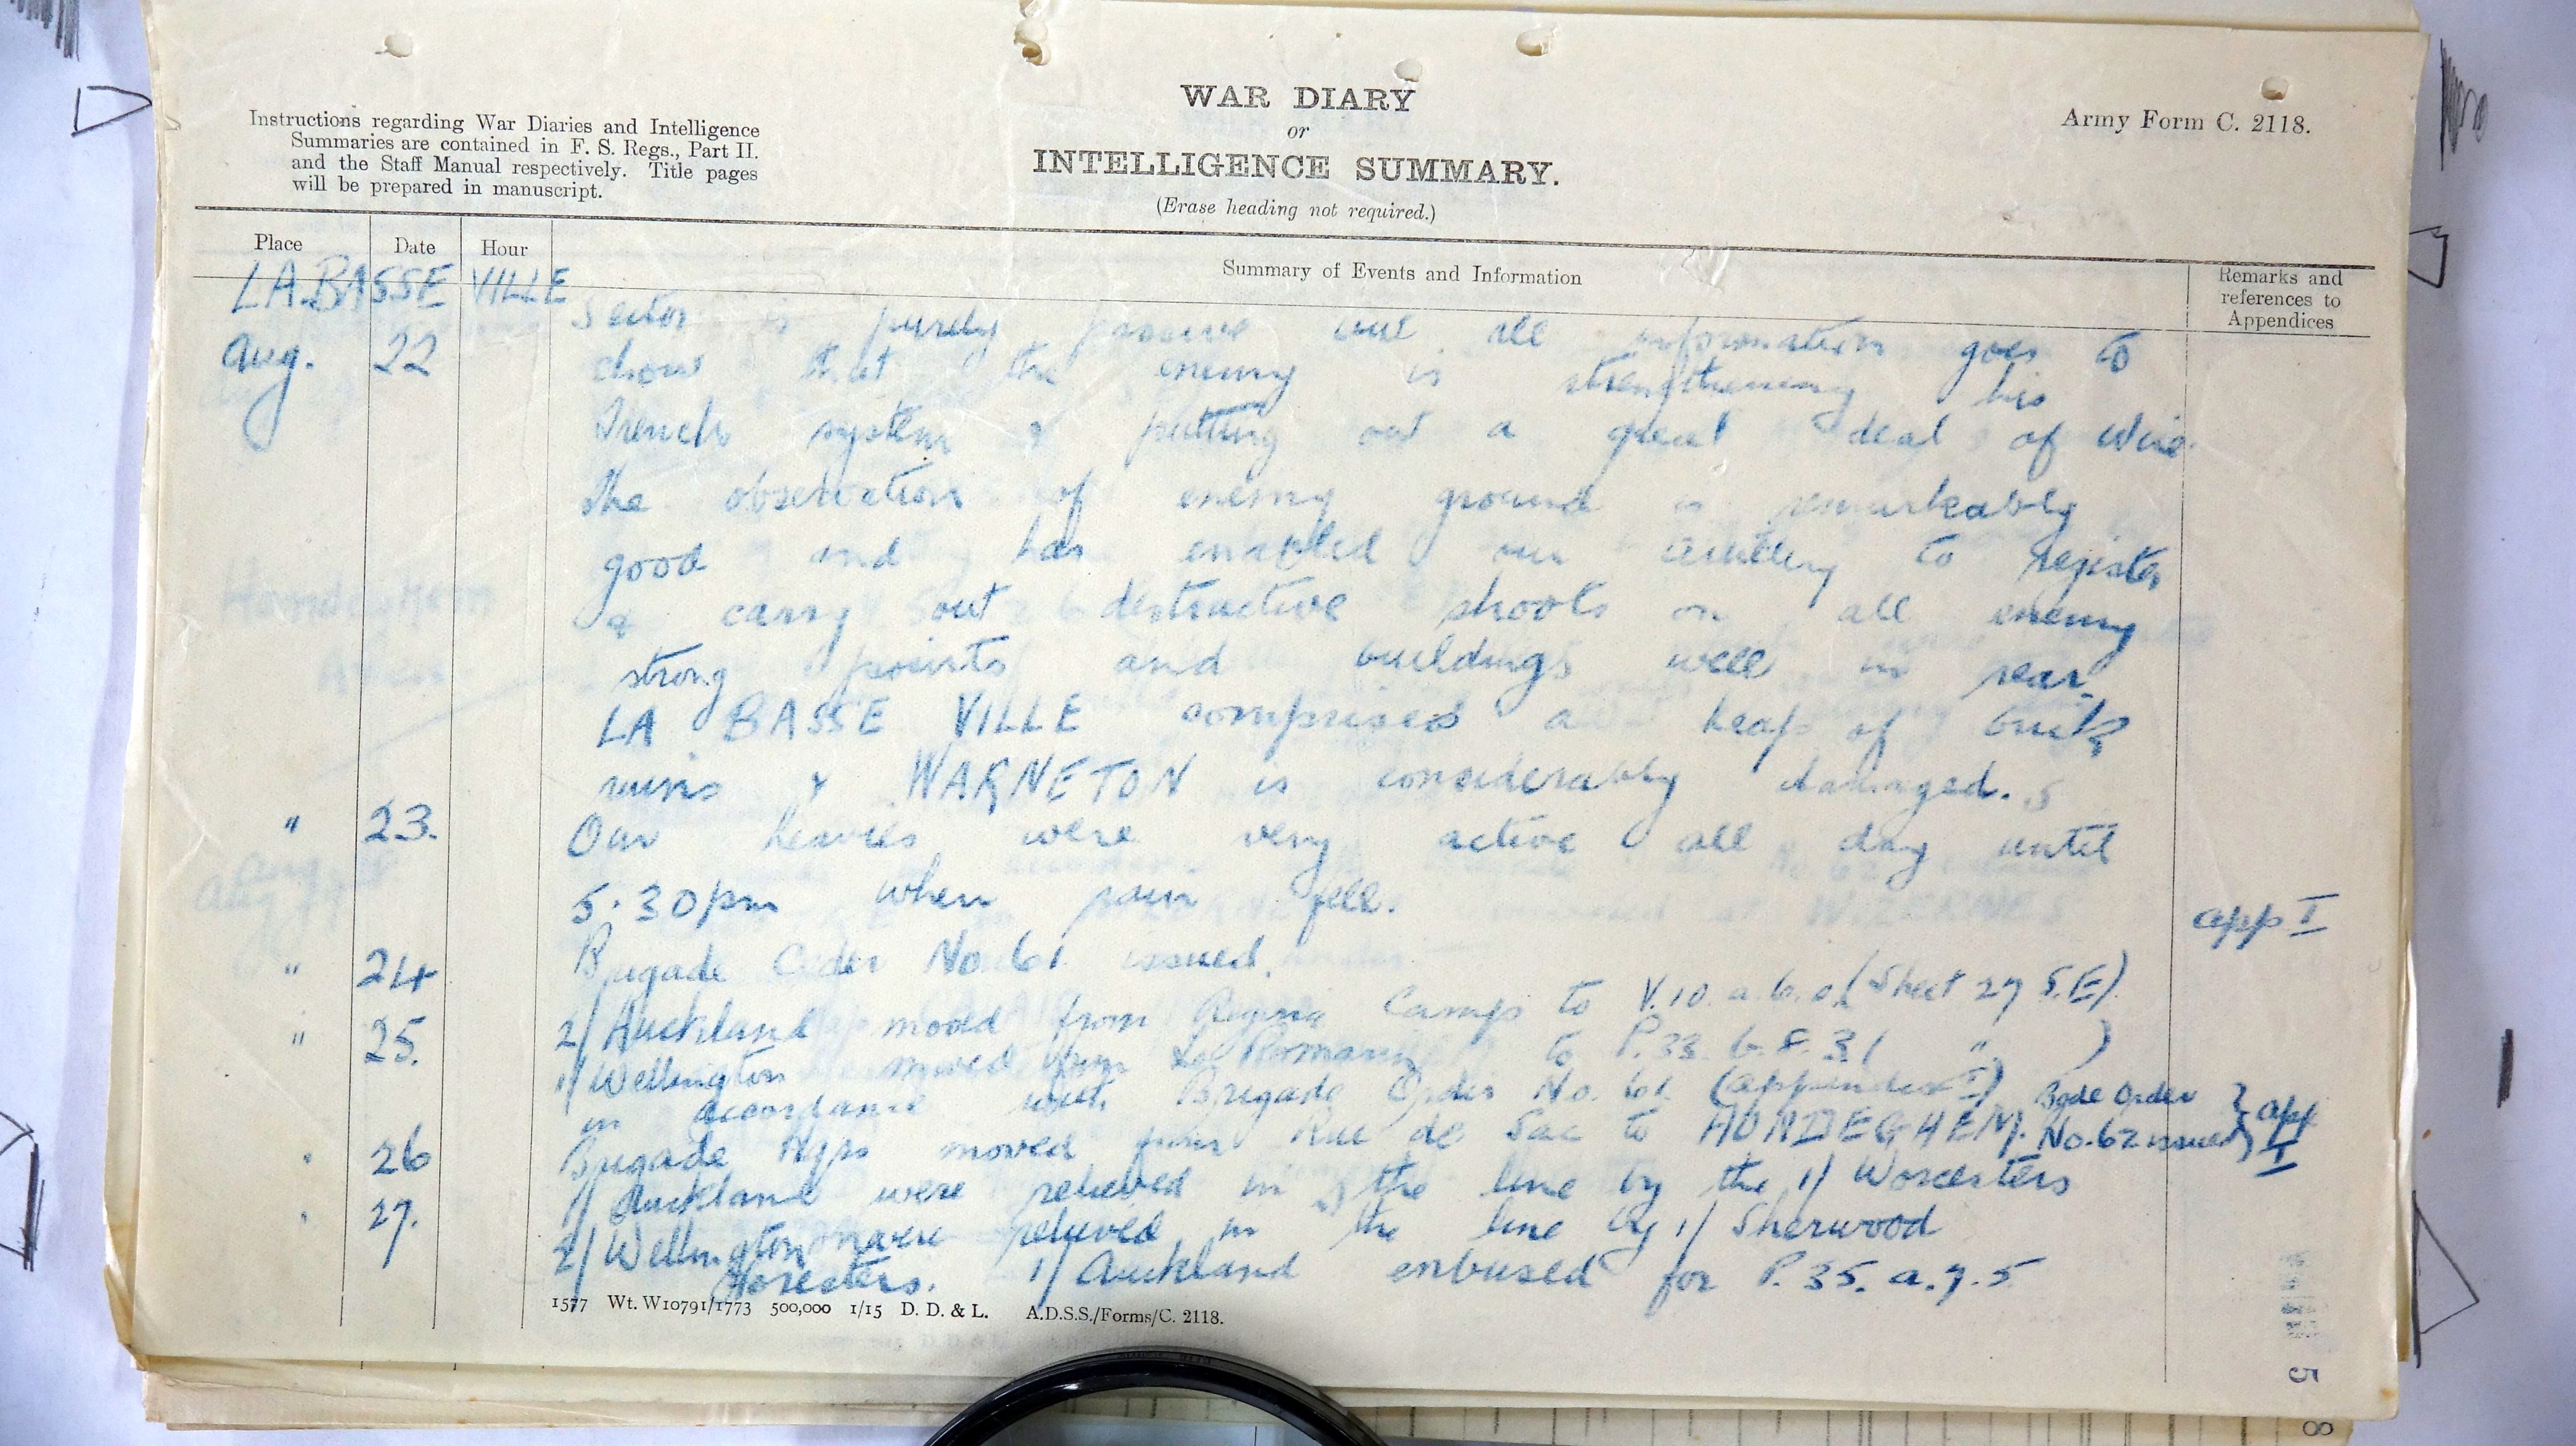 WAR DIARY
or
INTELLIGENCE SUMMARY.
(Erase heading not required.)
Army Form C. 2118.
Instructions regarding War Diaries and Intelligence
Summaries are contained in F. S. Regs., Part II.
and the Staff Manual respectively. Title pages
will be prepared in manuscript.
Place Date Hour Summary of Events and Information Remarks and
references to
Appendices
LA BASSE VILLE
Aug. 22 Sector is purely passive but all information goes to
show that the enemy is strengthening his
trench system & putting out a great deal of wire.
The observation of enemy ground is remarkably
good and has enabled our artillery to register
& carry out destructive shoots on all enemy
strong points and buildings well in rear.
LA BASSE VILLE comprises a heap of brick
ruins & WARNETON is considerably damaged.
" 23. Our heavies were very active all day until
5.30pm when rain fell.
" 24 Brigade Order No 61 issued. app I
" 25. 2/ Auckland moved from Regina Camp to V.10.a.6.0 (Sheet 27 S.E)
1/ Wellington moved from La Romarin to P.33.b.8.3 ( " )
in accordance with Brigade Order No. 61 (appendix I) Bgde Order
" 26 Brigade Hqrs moved from Rue de Sac to HONDEGHEM. No. 62 issued } app I
" 27. 1/ Auckland were relieved in the line by the 1/ Worcesters
2/ Wellington were relieved in the line by 1/ Sherwood
Foresters. 1/ Auckland embused for P.35.a.7.5
1577 Wt. W10791/1773 500,000 1/15 D. D. & L. A.D.S.S./Forms/C. 2118.
5
8